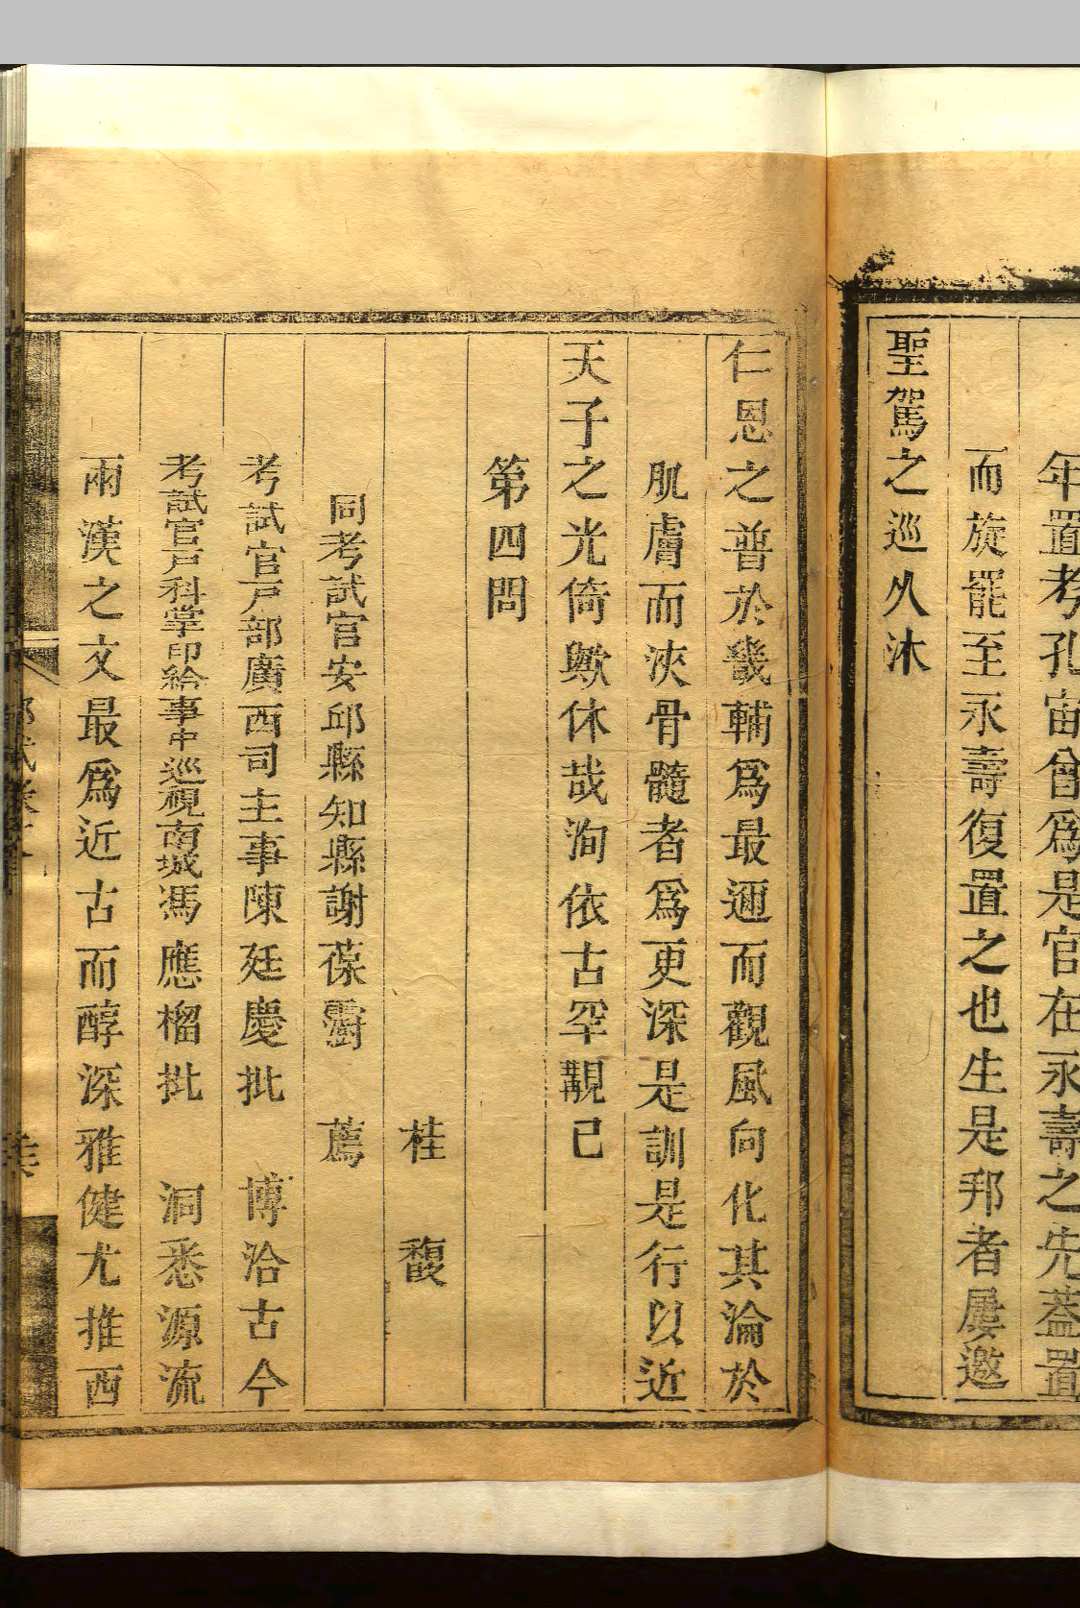 年置考孔宙曾爲是官在永壽之先蓋置
而旋罷至永壽復置之也生是邦者屢邀
聖駕之巡久沐
仁恩之普於畿輔爲最邇而觀風向化其淪於
肌膚而浹骨髓者爲更深是訓是行以近
天子之光倚歟休哉洵依古罕覯已
第四問
桂馥
同考試官安邱縣知縣謝葆霨薦
考試官戸部廣西司主事陳廷慶批 博洽古今
考試官戸科掌印給事中巡視南城馮應榴批 洞悉源流
兩漢之文最爲近古而醇深雅健尤推西